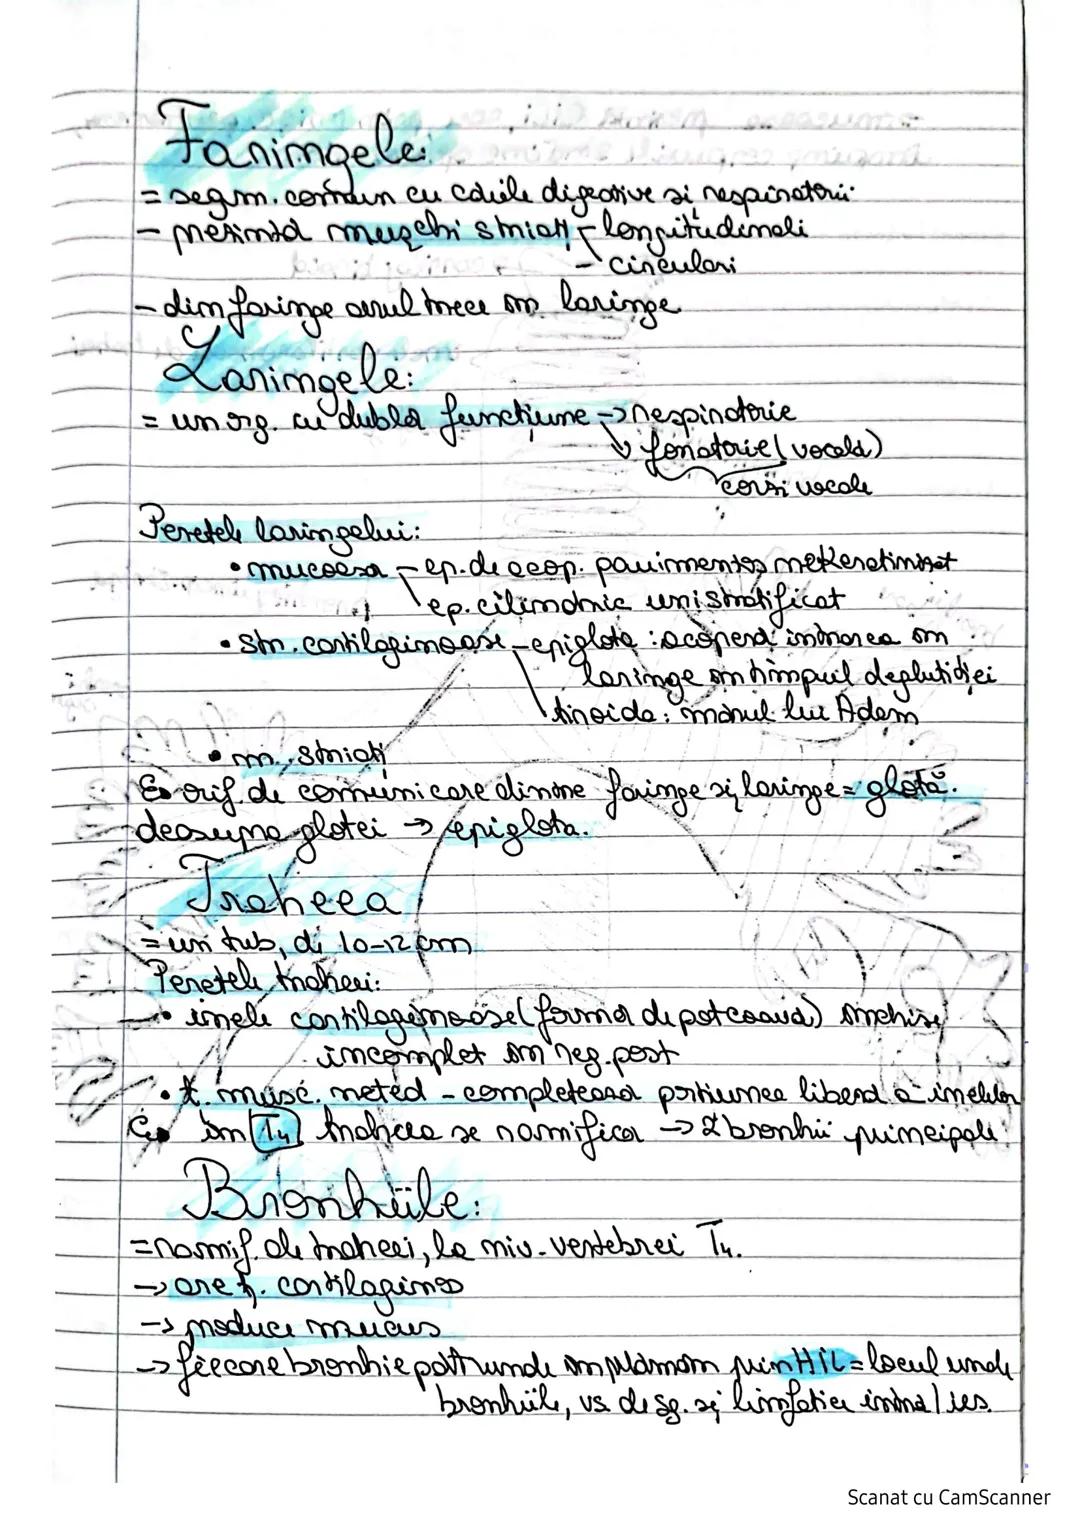 Faringele:
= segm. comun cu căile digestive și respiratorii.
- prezintă mușchi striați - longitudinali
- circulari
- din faringe aerul trece în laringe
Laringele:
= un org. cu dublă funcțiune -> respiratorie
↓ fonatorie (vocală)
corzi vocale
Peretele laringelui:
• mucoasa - ep. de acop. pavimentos nekeratinizat
ep. cilindric unistratificat
• str. cartilaginoase - epiglota : acoperă intrarea în
laringe în timpul deglutiției
tiroida: mărul lui Adam
• m. striați
orif. de comunicare dintre faringe și laringe = glotă.
deasupra glotei -> epiglota.
Traheea
= un tub, de 10-12 cm
Peretele traheei:
• inele cartilaginoase (formă de potcoavă) închise
incomplet în reg. post
• ț. musc. neted - completează porțiunea liberă a inelelor
în T4 traheea se ramifică -> 2 bronhii principale
Bronhiile:
= ramif. ale traheei, la niv. vertebrei T4.
-> are ț. cartilaginos
-> produce mucus
-> fiecare bronhie pătrunde în plămân prin HIL = locul unde
bronhiile, vs. de sg. și limfatice intră / ies.
Scanat cu CamScanner